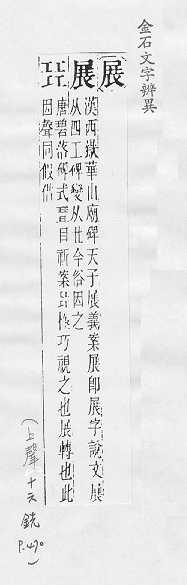 金石文字辨異
展
展
漢西嶽華山廟碑天子展義案展即展字說文展
从四工碑變从世今俗因之
㠭
唐碧落碑式㠭目祈案㠭極巧視之也展轉也此
因聲同假借
(上聲十六銑 P.490)